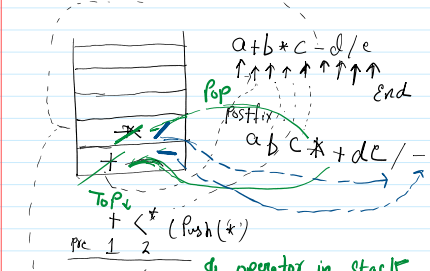 a+b*c-d/e
End
Pop
Postfix
a b c * + d e / -
*
/
+
-
TOP
+ < * (Push(*)
Pre 1 2
operator in stack